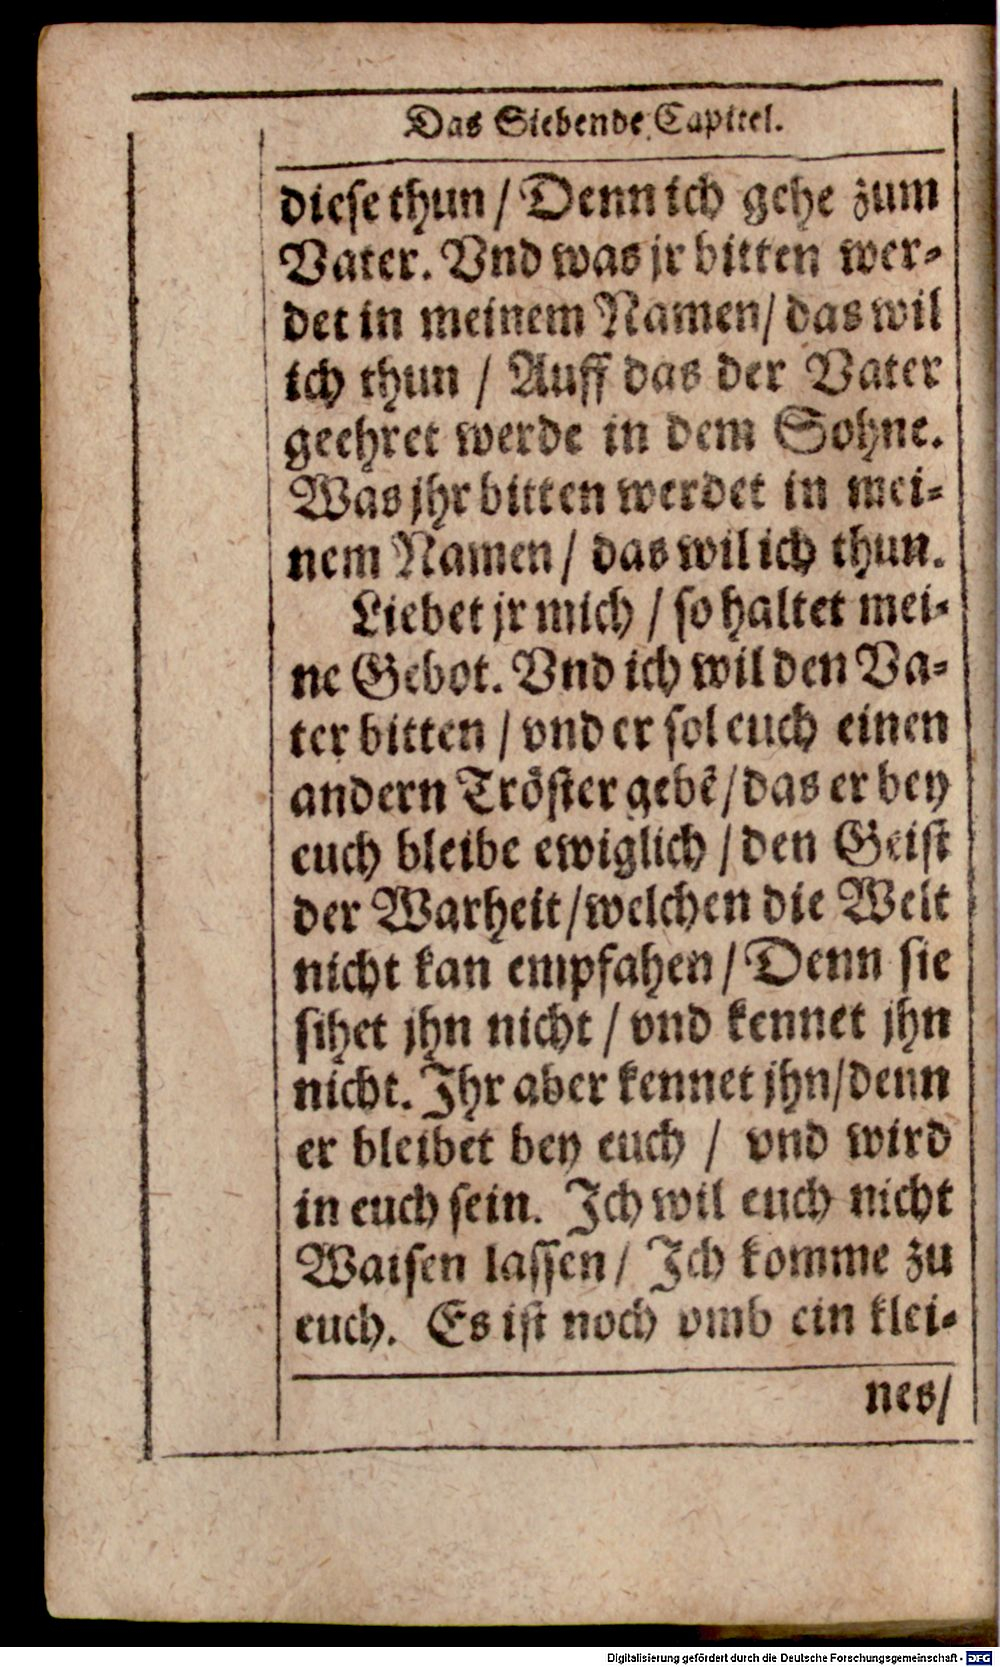 Das Siebende Capitel.
diese thun / Denn ich gehe zum
Vater. Vnd was jr bitten wer-
det in meinem Namen/ das wil
ich thun / Auff das der Vater
geehret werde in dem Sohne.
Was jhr bitten werdet in mei-
nem Namen / das wil ich thun.
Liebet jr mich / so haltet mei-
ne Gebot. Vnd ich wil den Va-
ter bitten / vnd er sol euch einen
andern Tröster gebẽ/ das er bey
euch bleibe ewiglich / den Geist
der Warheit/welchen die Welt
nicht kan empfahen / Denn sie
sihet jhn nicht / vnd kennet jhn
nicht. Jhr aber kennet jhn/denn
er bleibet bey euch / vnd wird
in euch sein. Jch wil euch nicht
Waisen lassen/ Jch komme zu
euch. Es ist noch vmb ein klei-
nes/
Digitalisierung gefördert durch die Deutsche Forschungsgemeinschaft - DFG